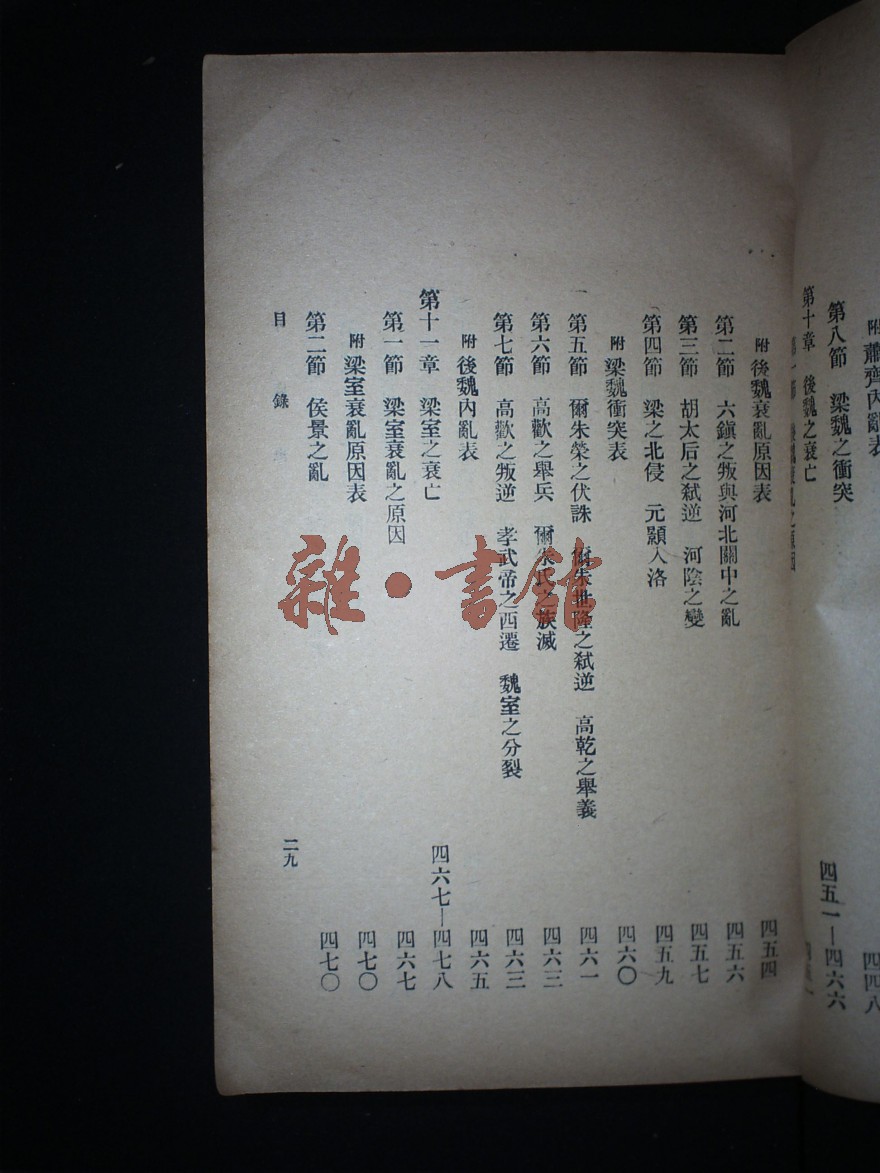 附 蕭齊內亂表 四四八
第八節 梁魏之衝突
第十章 後魏之衰亡 四五一—四六六
第一節 後魏衰亂之原因
附 後魏衰亂原因表 四五四
第二節 六鎭之叛與河北關中之亂 四五六
第三節 胡太后之弒逆 河陰之變 四五七
第四節 梁之北侵 元顥入洛 四五九
附 梁魏衝突表 四六〇
第五節 爾朱榮之伏誅 爾朱世隆之弒逆 高乾之舉義 四六一
第六節 高歡之舉兵 爾朱氏之族滅 四六三
第七節 高歡之叛逆 孝武帝之西遷 魏室之分裂 四六三
附 後魏內亂表 四六五
第十一章 梁室之衰亡 四六七—四七八
第一節 梁室衰亂之原因 四六七
附 梁室衰亂原因表 四七〇
第二節 侯景之亂 四七〇
目錄 二九
雜·書館